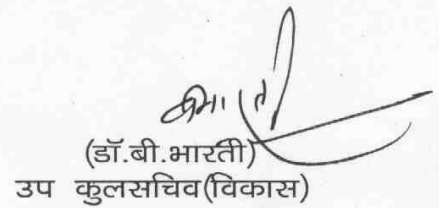 (डॉ.बी.भारती)
उप कुलसचिव(विकास)